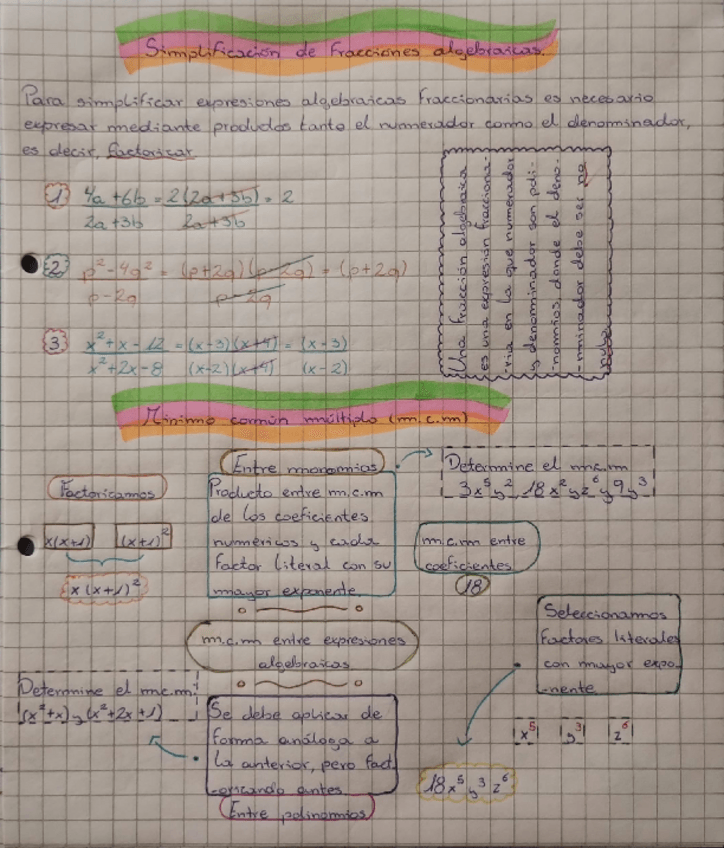 Simplificación de Fracciones algebraicas.
Para simplificar expresiones algebraicas fraccionarias es necesario
expresar mediante productos tanto el numerador como el denominador,
es decir, factorizar
1) 4a + 6b = 2(2a + 3b) = 2
2a + 3b 2a + 3b
2) p² - 4q² = (p + 2q)(p - 2q) = (p + 2q)
p - 2q p - 2q
3) x² + x - 12 = (x - 3)(x + 4) = (x - 3)
x² + 2x - 8 (x - 2)(x + 4) (x - 2)
Una fracción algebraica
es una expresión fracciona-
ria en la que numerador
y denominador son poli-
nomios, donde el deno-
minador debe ser no
nulo
Mínimo común múltiplo (m.c.m)
Entre monomios
Producto entre m.c.m
de los coeficientes
numéricos y cada
factor literal con su
mayor exponente
Determine el m.c.m
3x⁵y², 18x²yz⁶ y 9y³
m.c.m entre
coeficientes
18
Seleccionamos
factores literales
con mayor expo-
nente
x⁵ y³ z⁶
18x⁵y³z⁶
m.c.m entre expresiones
algebraicas
Se debe aplicar de
forma análoga a
la anterior, pero fact
orizando antes
Entre polinomios
Determine el m.c.m:
(x² + x) y (x² + 2x + 1)
Factorizamos
x(x + 1) (x + 1)²
x(x + 1)²